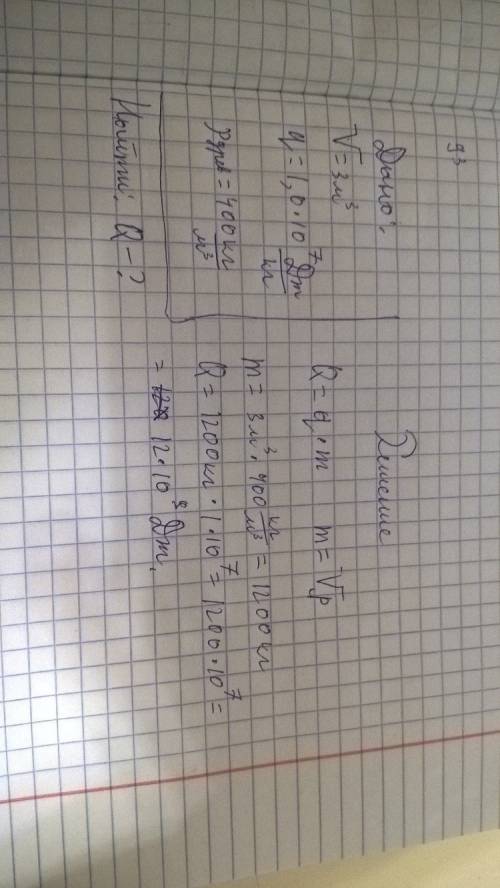 93
Дано:
V = 3 м³
q = 1,0·10⁷ Дж/кг
ρдров = 400 кг/м³
Найти: Q - ?
Решение
Q = q·m m = Vρ
m = 3 м³ · 400 кг/м³ = 1200 кг
Q = 1200 кг · 1·10⁷ = 1200·10⁷ =
= 12·10⁸ Дж.